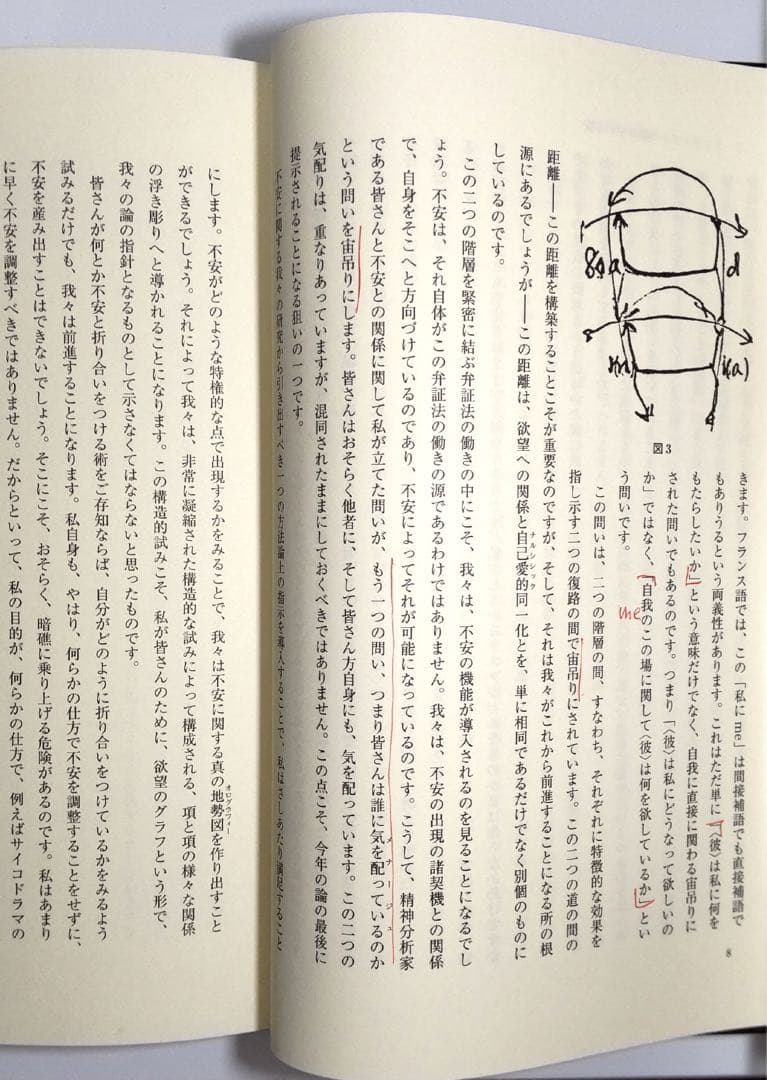 d
i(a)
図3
きます。フランス語では、この「私に me」は間接補語でも直接補語で
もありうるという両義性があります。これはただ単に「〈彼〉は私に何を
もたらしたいか」という意味だけでなく、自我に直接に関わる宙吊りに
された問いでもあるのです。つまり「〈彼〉は私にどうなって欲しいの
か」ではなく、「自我のこの場に関して〈彼〉は何を欲しているか」とい
me
う問いです。
この問いは、二つの階層の間、すなわち、それぞれに特徴的な効果を
指し示す二つの復路の間で宙吊りにされています。この二つの道の間の
距離——この距離を構築することこそが重要なのですが、そして、それは我々がこれから前進することになる所の根
源にあるでしょうが——この距離は、欲望への関係と自己愛的同一化とを、単に相同であるだけでなく別個のものに
ナルシシック
しているのです。
この二つの階層を緊密に結ぶ弁証法の働きの中にこそ、我々は、不安の機能が導入されるのを見ることになるでし
ょう。不安は、それ自体がこの弁証法の働きの源であるわけではありません。我々は、不安の出現の諸契機との関係
で、自身をそこへと方向づけているのであり、不安によってそれが可能になっているのです。こうして、精神分析家
である皆さんと不安との関係に関して私が立てた問いが、もう一つの問い、つまり皆さんは誰に気を配っているのか
メナージュ
という問いを宙吊りにします。皆さんはおそらく他者に、そして皆さん方自身にも、気を配っています。この二つの
気配りは、重なりあっていますが、混同されたままにしておくべきではありません。この点こそ、今年の論の最後に
提示されることになる狙いの一つです。
不安に関する我々の研究から引き出すべき一つの方法論上の指示を導入することで、私はさしあたり満足すること
8
にします。不安がどのような特権的な点で出現するかをみることで、我々は不安に関する真の地勢図を作り出すこと
オログラフィー
ができるでしょう。それによって我々は、非常に凝縮された構造的な試みによって構成される、項と項の様々な関係
の浮き彫りへと導かれることになります。この構造的試みこそ、私が皆さんのために、欲望のグラフという形で、
我々の論の指針となるものとして示さなくてはならないと思ったものです。
皆さんが何とか不安と折り合いをつける術をご存知ならば、自分がどのように折り合いをつけているかをみるよう
試みるだけでも、我々は前進することになります。私自身も、やはり、何らかの仕方で不安を調整することをせずに、
不安を産み出すことはできないでしょう。そこにこそ、おそらく、暗礁に乗り上げる危険があるのです。私はあまり
に早く不安を調整すべきではありません。だからといって、私の目的が、何らかの仕方で、例えばサイコドラマの